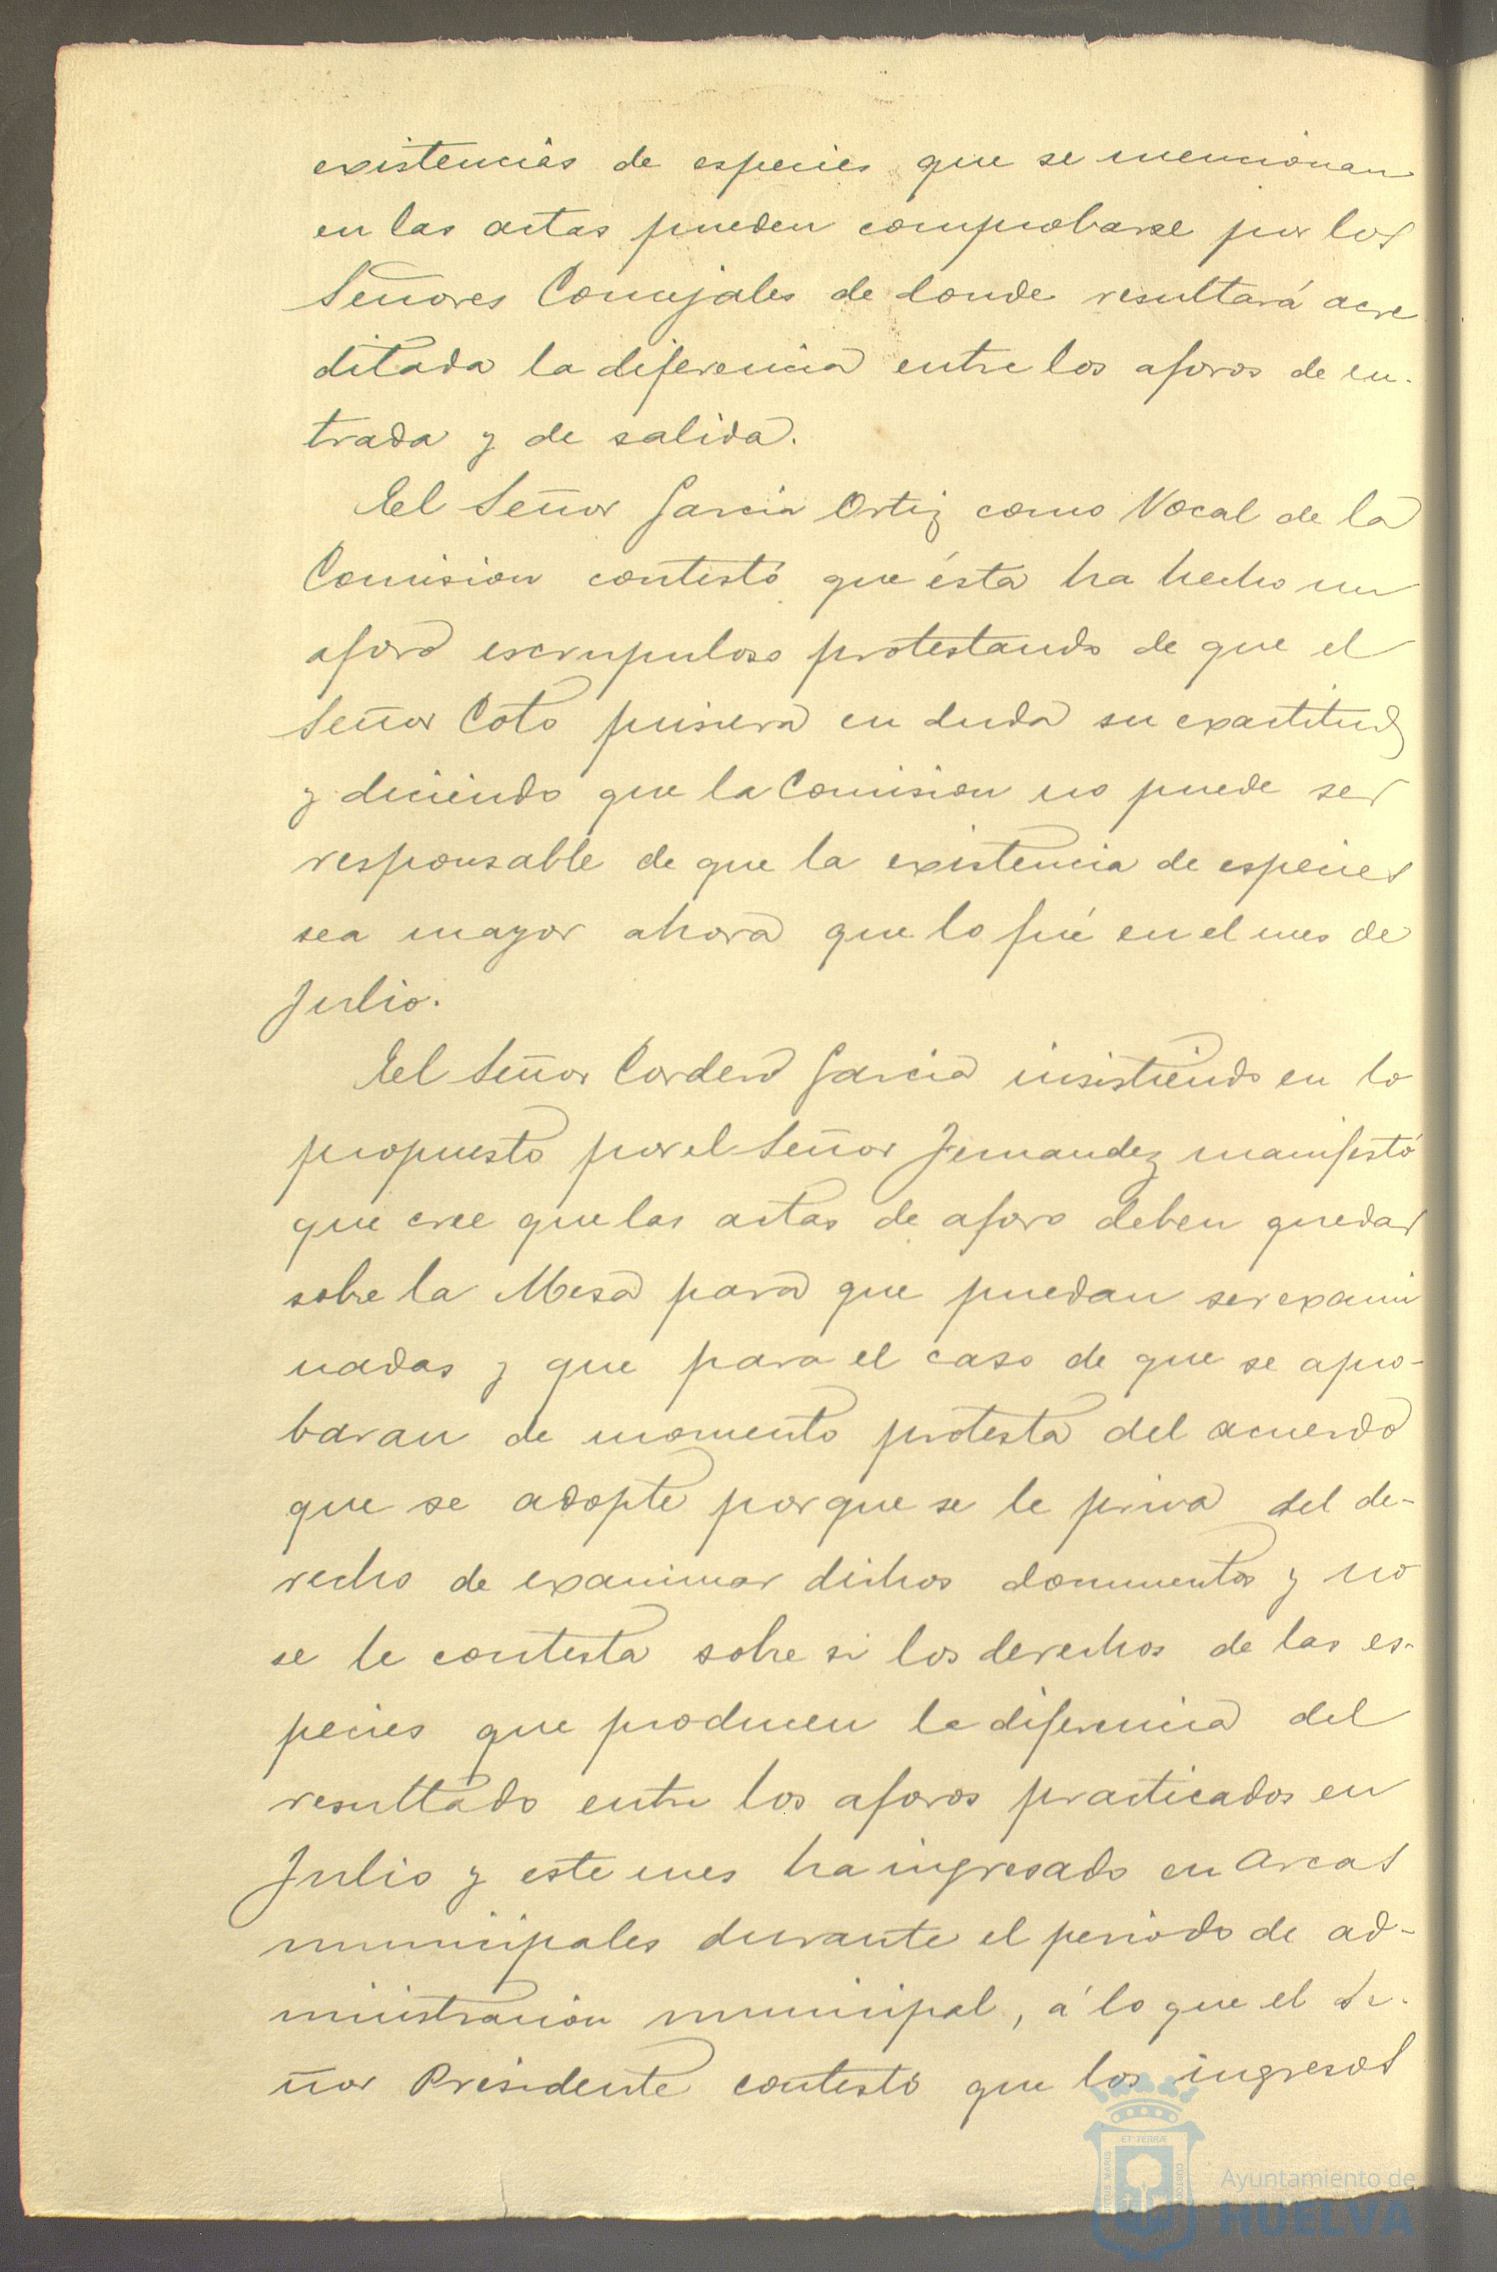 existencias de especies que se mencionan
en las actas pueden comprobarse por los
Señores Concejales de donde resultará acre
ditada la diferencia entre los aforos de en-
trada y de salida.
El Señor Garcia Ortiz como Vocal de la
Comision contestó que ésta ha hecho un
aforo escrupuloso protestando de que el
Señor Coto pusiera en duda su exactitud
y diciendo que la Comision no puede ser
responsable de que la existencia de especies
sea mayor ahora que lo fué en el mes de
Julio.
El Señor Cordero Garcia insistiendo en lo
propuesto por el Señor Fernandez manifestó
que cree que las actas de aforo deben quedar
sobre la Mesa para que puedan ser exami
nadas y que para el caso de que se apro-
baran de momento protesta del acuerdo
que se adopte porque se le priva del de-
recho de examinar dichos documentos y no
se le contesta sobre si los derechos de las es-
pecies que producen la diferencia del
resultado entre los aforos practicados en
Julio y este mes ha ingresado en arcas
municipales durante el periodo de ad-
ministracion municipal, á lo que el Se-
ñor Presidente contestó que los ingresos
Ayuntamiento de
HUELVA